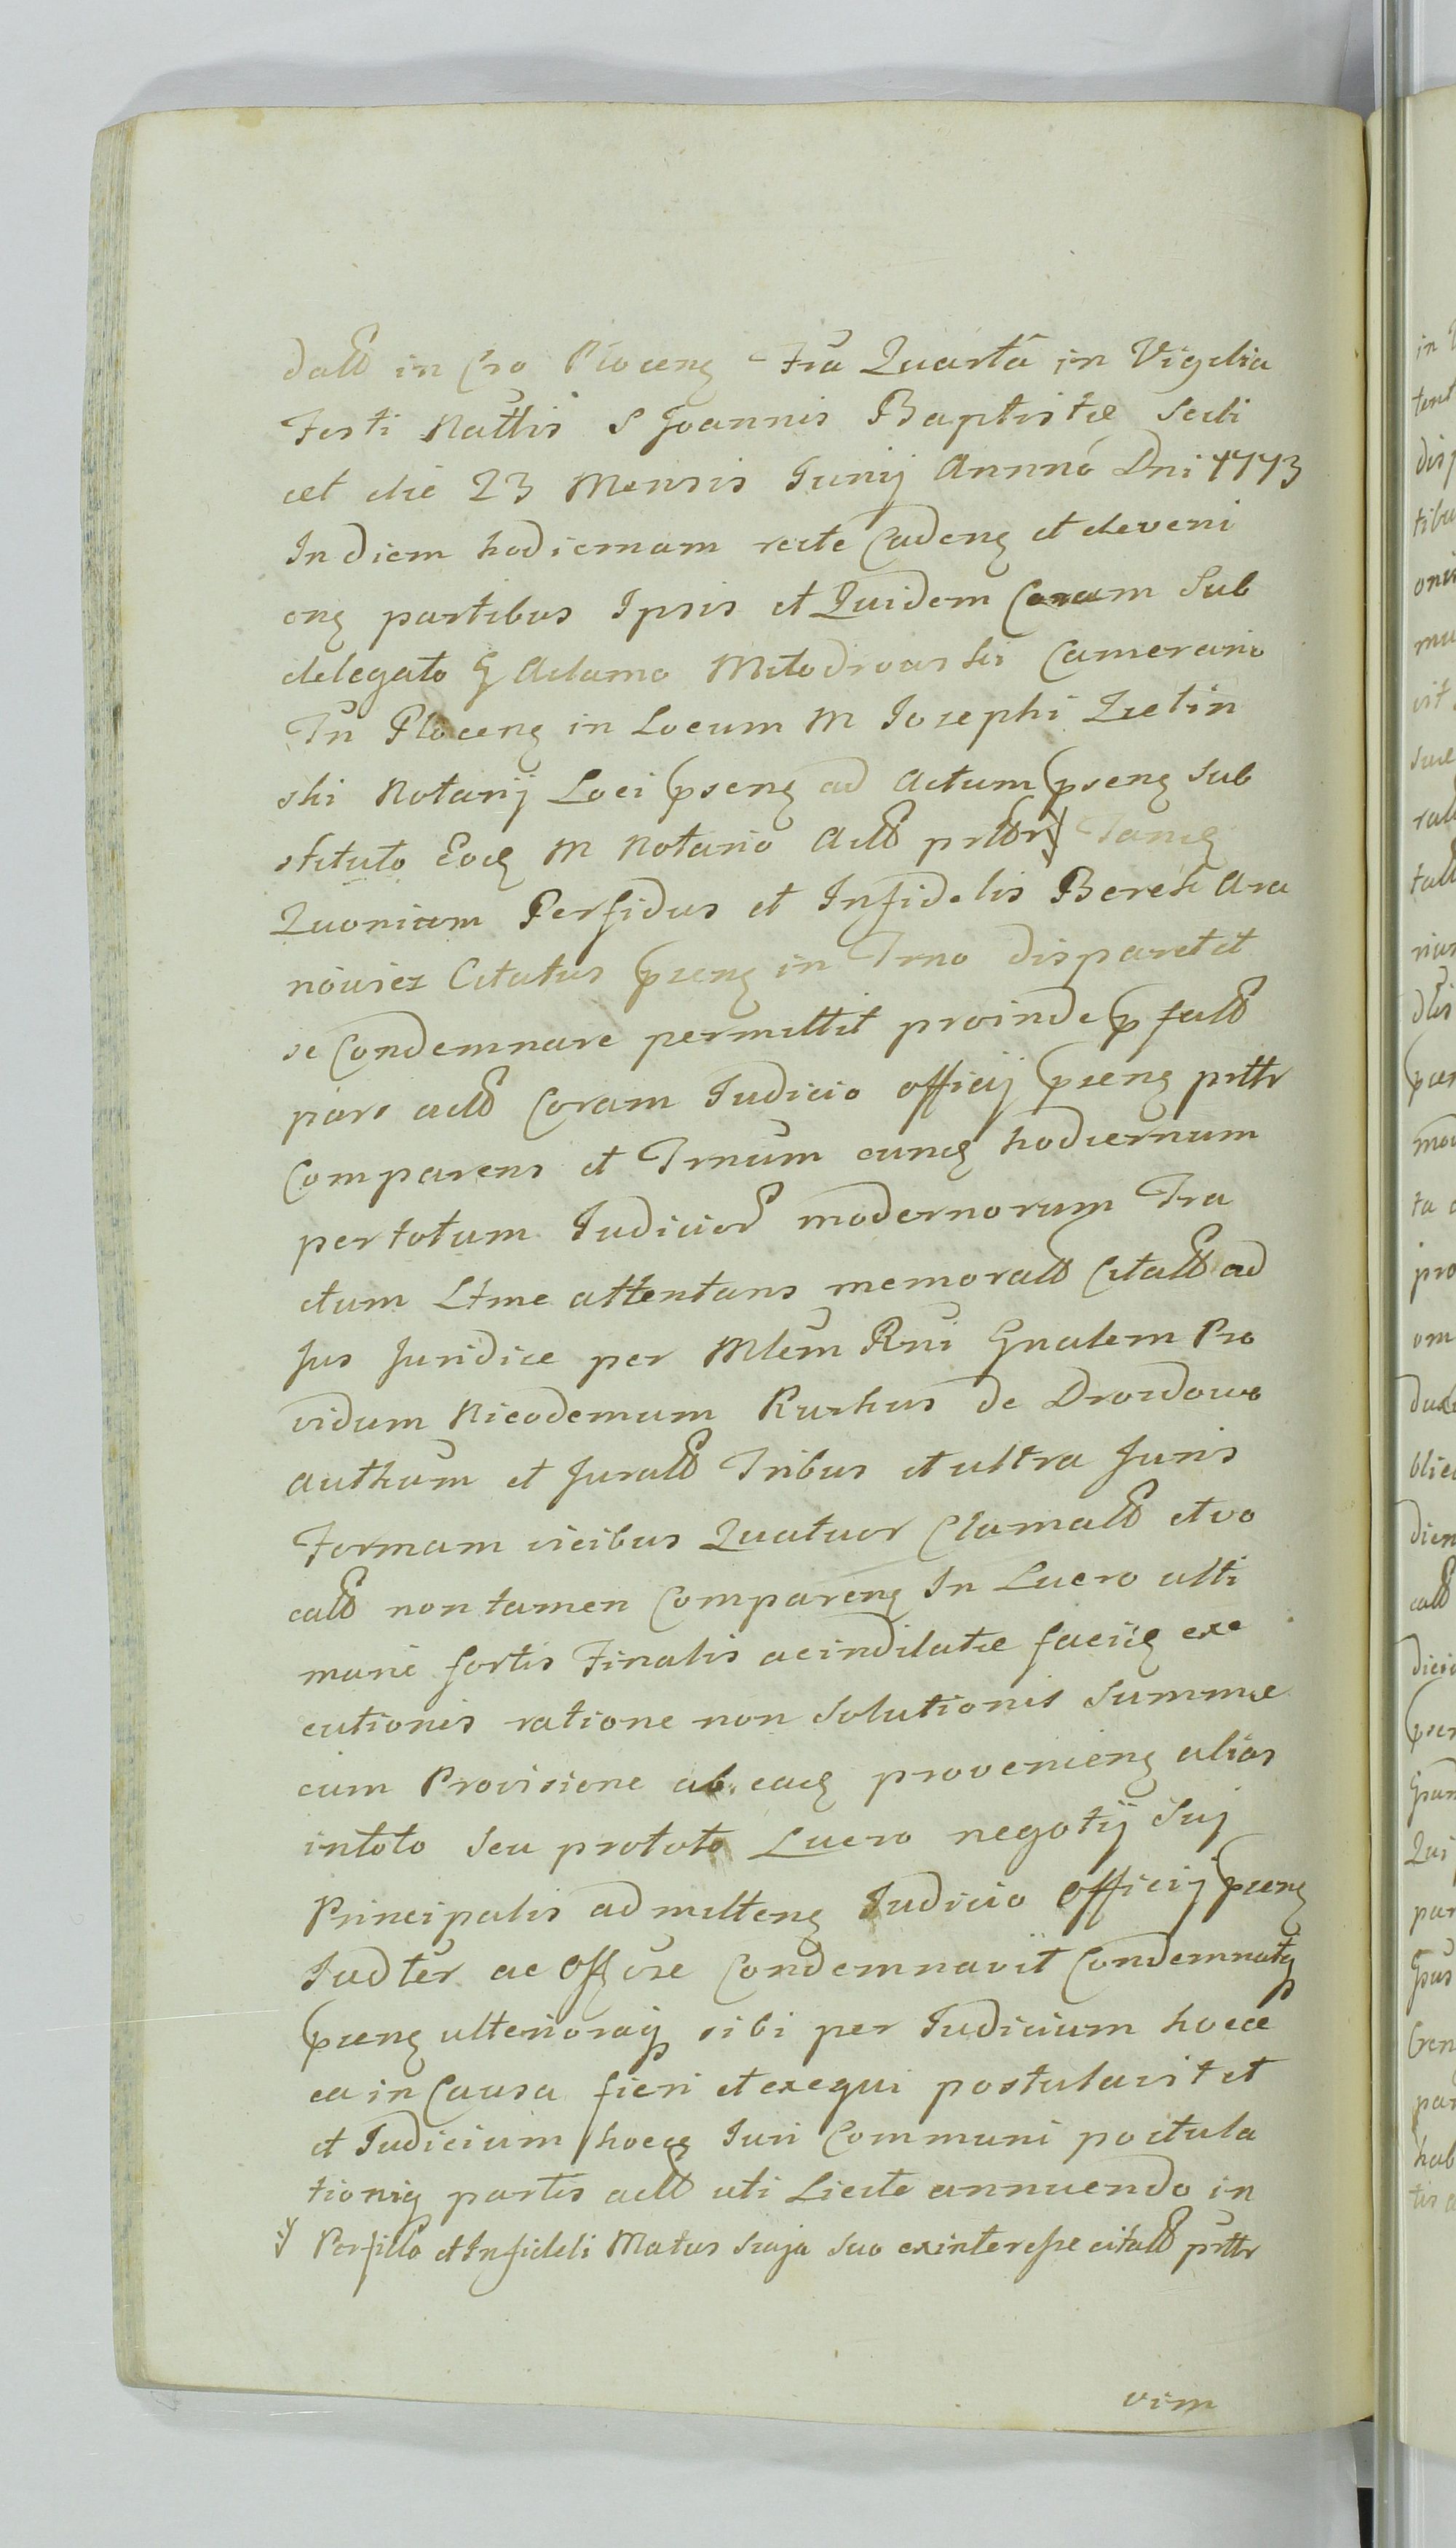 dato in Cro Plocen Fria Quarta in Vigilia
Festi Nattis S Joannis Baptistæ Scili
cet die 23 Mensis Junij Annnô Dni 1773
In diem hodiernam recte Caden et deveni
en partibus Ipsis et Quidem Coram Sub
delegato G Adamo Milodrowski Camerario
Trū Plocen in Locum M Josephi Zielin
ski Notarij Loci psen ad Actum psen Sub
stituto Eodq M Notario Acto prttr Tanq
Quoniam Perfidus et Infidelis Berek Ara
nowicz Citatus psen in Trno disparet et
se Condemnare permittit proinde pfato
pars acto Coram Judicio officij psen prttr
Comparens et Trnum eunq hodiernum
per totum Judicior modernorum Tra
ctum Ltme attentans memorato Citato ad
Jus Juridice per Mlem Rni Gnalem Pro
vidum Nicodemum Ruskus de Drozdowo
authum et Jurato Tribus et ultra Juris
Formam vicibus Quatuor Clamato et vo
cato non tamen Comparen In Lucro ulti
mariæ sortis Finalis ac indilatæ faciq exe
cutionis ratione non Solutionis Summæ
cum Provisione ab eadq provenien alias
in toto seu pro toto Lucro negotij Suj
Principalis admitten Judicio Officij psen
Judter ac Offose Condemnavit Condemnatq
psen ulterioraq sibi per Judicium hocce
ea in Causa fieri et exequi postulavit et
et Judicium hocce Juri Communi postula
tioniq partis acto uti Licite annuendo in
Perfido et Infideli Matus Szaja Suo ex interesse citato prttr
vim